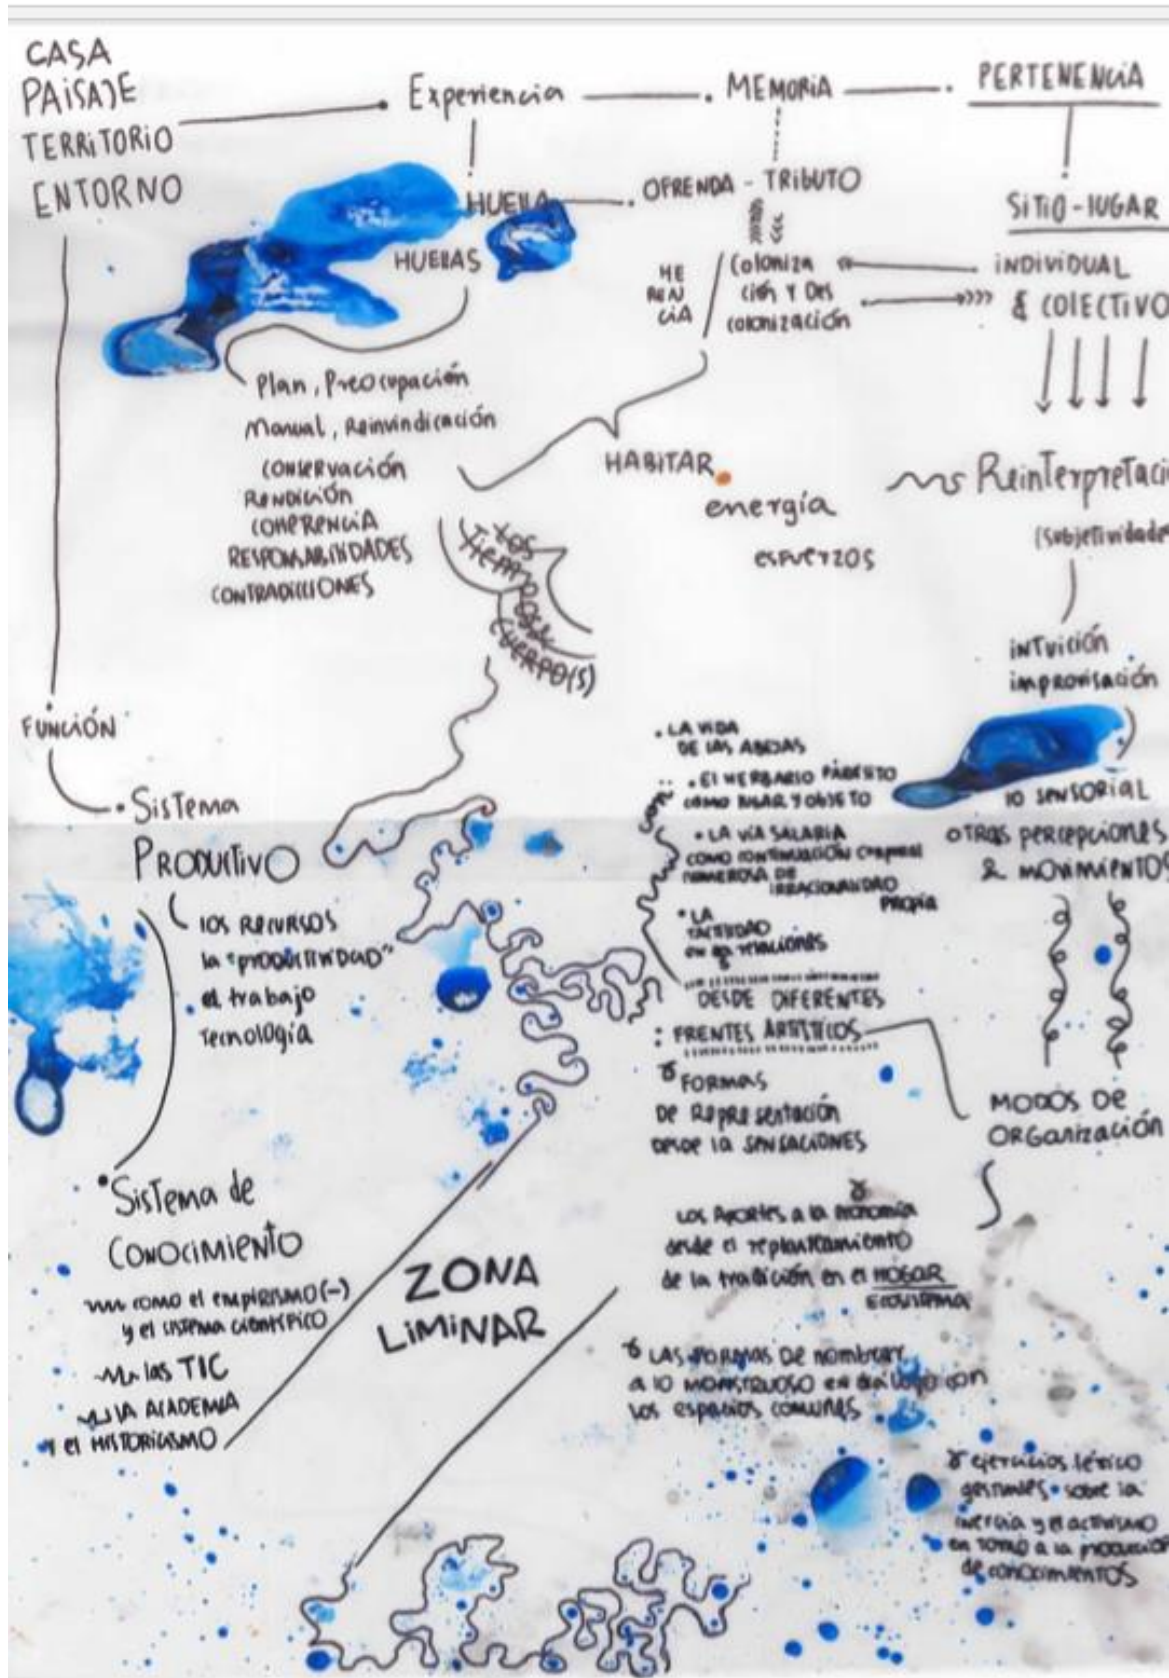 CASA
PAISAJE
TERRITORIO
ENTORNO
Experiencia
MEMORIA
PERTENENCIA
HUELLA
OFRENDA - TRIBUTO
SITIO - LUGAR
HUELLAS
HE
REN
CIA
Coloniza
ción y Des
colonización
INDIVIDUAL
& COLECTIVO
Plan, Preocupación
Manual, Reinvindicación
CONSERVACIÓN
RENDICIÓN
COHERENCIA
RESPONSABILIDADES
CONTRADICCIONES
HABITAR
energía
esfuerzos
Reinterpretaci
(subjetividades
LOS
TIEMPOS
CUERPO(S)
INTUICIÓN
improvisación
FUNCIÓN
Sistema
PRODUCTIVO
LOS RECURSOS
la "PRODUCTIVIDAD"
el trabajo
Tecnología
. LA VIDA
DE LAS ABEJAS
. El HERBARIO PARÁSITO
COMO LUGAR Y OBJETO
. LA VÍA SALARIA
COMO CONTINUACIÓN CORPORAL
NUMEROSA DE
IRRACIONALIDAD
PROPIA
. LA
TACTILIDAD
relaciones
DESDE DIFERENTES
: FRENTES ARTÍSTICOS
FORMAS
DE Representación
DESDE la SENSACIONES
lo SENSORIAL
OTRAS percepciones
& MOVIMIENTOS
MODOS DE
ORGanización
Sistema de
CONOCIMIENTO
como el empirismo (-)
y el SISTEMA CIENTÍFICO
las TIC
LA ACADEMIA
Y el HISTORICISMO
ZONA
LIMINAR
LOS APORTES a la
desde el replanteamiento
de la tradición en el HOGAR
ECOSISTEMA
LAS FORMAS DE nombrar
a lo MONSTRUOSO en diálogo con
los espacios comunes
ejercicios léxico
gestuales sobre la
inercia y el activismo
en TORNO a la producción
de conocimientos